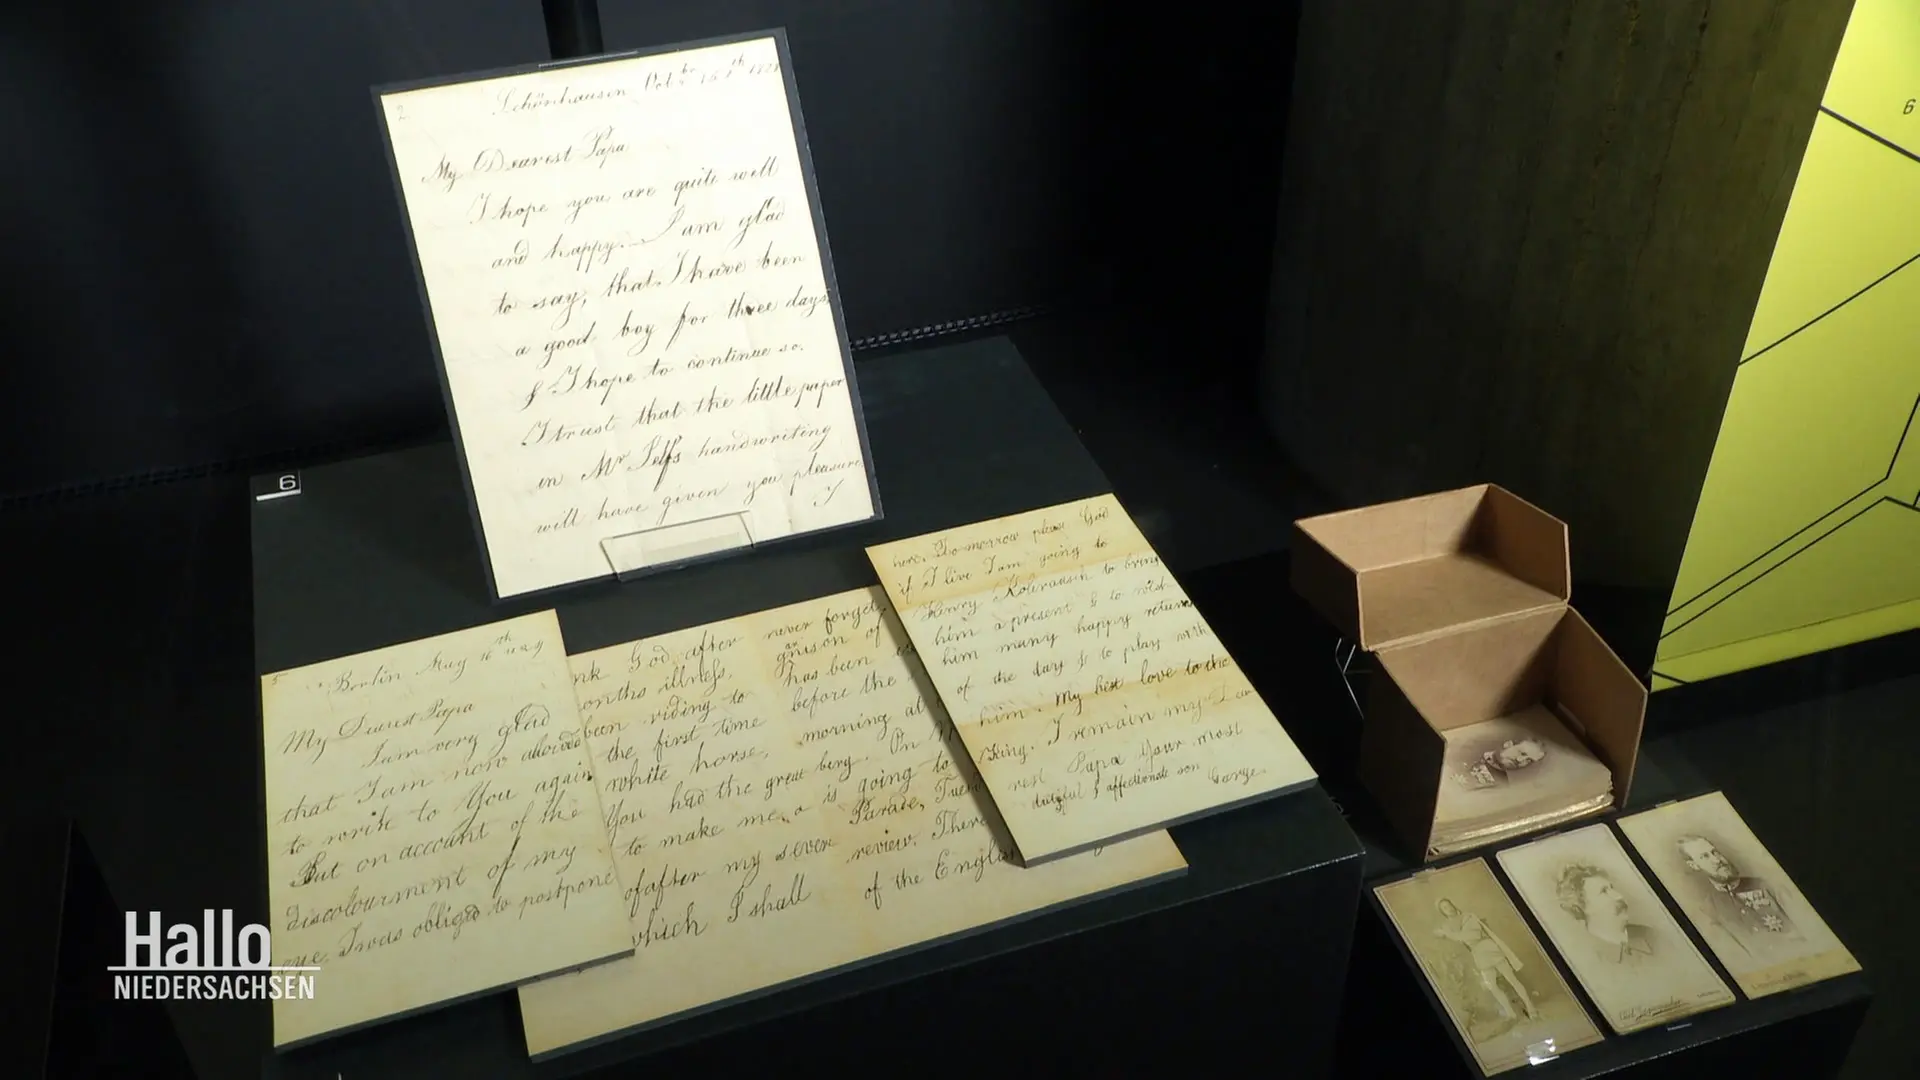 2.
Schönhausen Octbr 15th 1828
My Dearest Papa
I hope you are quite well
and happy. I am glad
to say, that I have been
a good boy for three days,
& I hope to continue so.
I trust that the little paper
in Mr Jelfs handwriting
will have given you pleasure.
I
6
5
Berlin May 16th 1829
My Dearest Papa
I am very glad
that I am now allowed
to write to You again
But on account of the
discolourment of my
eye, I was obliged to postpone
nk God after
onths illness,
been riding to
the first time
white horse,
You had the great
to make me a
of after my severe
which I shall
never forget,
has been
before the
morning at
berg. On
is going to
Parade, Tues
review. There
of the English
here. To-morrow please God
if I live I am going to
Henry Kohrausch to bring
him a present & to wish
him many happy returns
of the day & to play with
him. My best love to the
King. I remain my Dea
rest Papa Your most
dutiful & affectionate son
George
6
Hallo
NIEDERSACHSEN